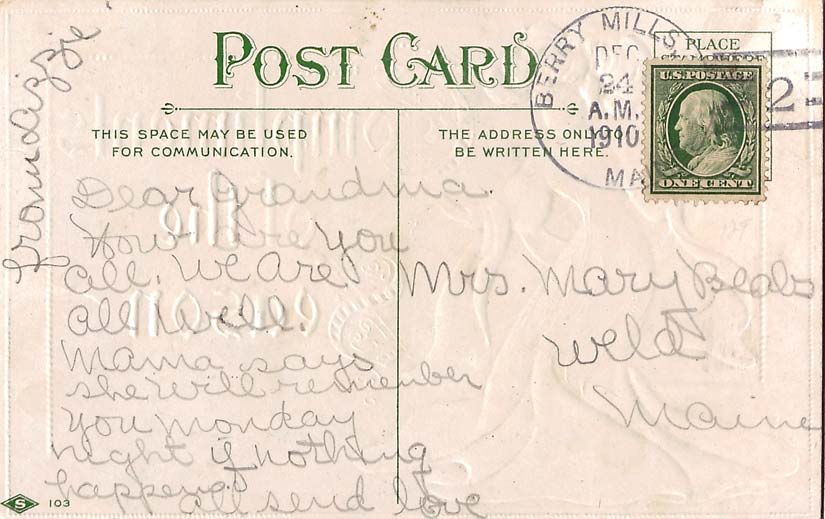 from Lizzie
POST CARD
THIS SPACE MAY BE USED
FOR COMMUNICATION.
THE ADDRESS ONLY TO
BE WRITTEN HERE.
PLACE
STAMP HERE
BERRY MILLS,
DEC
24
A.M.
1910
MA
2
U.S. POSTAGE
ONE CENT
129
Dear Grandma.
How are you
all. We are
all well.
Mama says
she will remember
you monday
night if nothing
happens.
all send love
Mrs. Mary Beals
Weld
Maine
S 103